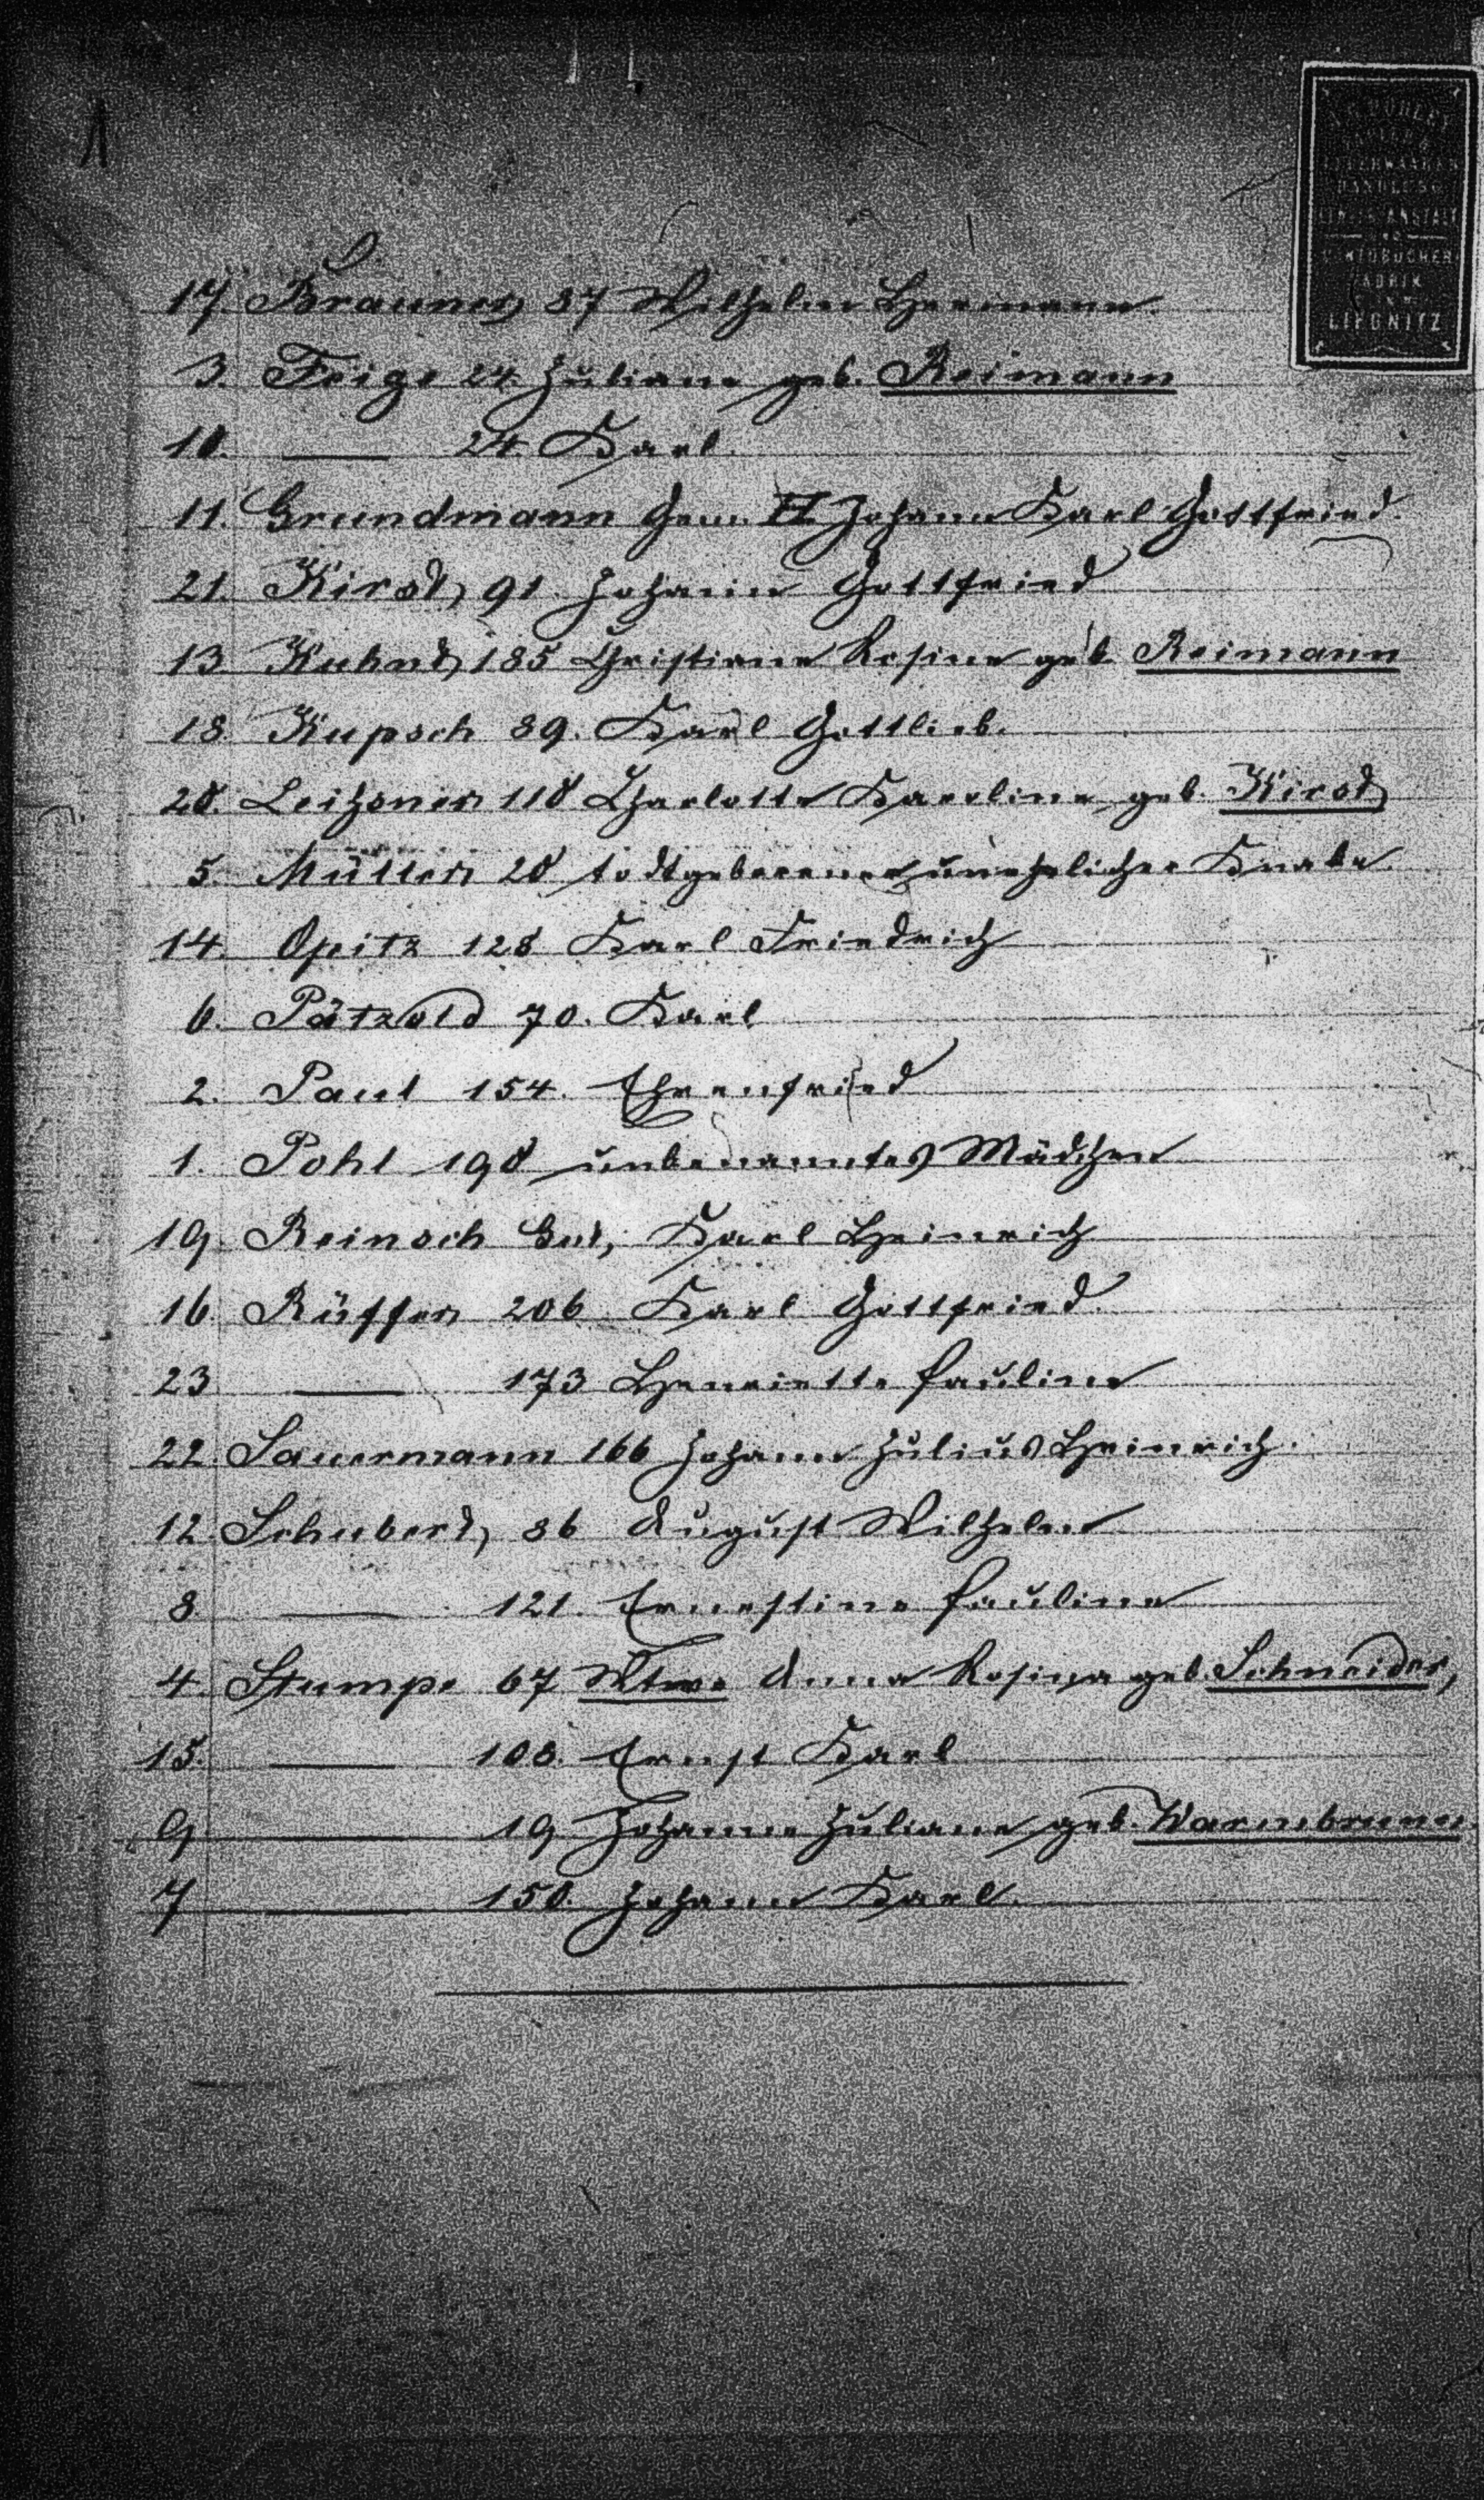 1
LIEGNITZ
17. Brauner, 37 Wilhelm Hermann.
3. Feige 24. Juliane geb. Reimann
10. —— 24. Karl.
11. Grundmann Gem. II Johann Karl Gottfried.
21. Kirst, 91. Johann Gottfried
13 Kuhnt, 185 Christiane Rosine geb. Reimann
18. Kupsch 89. Karl Gottlieb.
20. Leitzner 110 Charlotte Karoline geb. Kirst,
5. Müller 20 todtgeborener unehelicher Knabe.
14. Opitz 128 Karl Friedrich
6. Pätzold 70. Karl
2. Paul 154. Ehrenfried
1. Pohl 190 unbenanntes Mädchen
19. Reinsch Gut, Karl Heinrich
16. Rüffer 206 Karl Gottfried.
23 —— 173 Henriette Pauline
22. Sauermann 166 Johann Julius Heinrich.
12. Schubert, 36 August Wilhelm
8. —— 121. Ernestine Pauline
4. Stumpe 67 Wtwe Anna Rosina geb. Schneider,
15. —— 108. Ernst Karl
9. —— 19 Johanne Juliane geb. Warmbrunn
7 —— 150. Johann Karl.